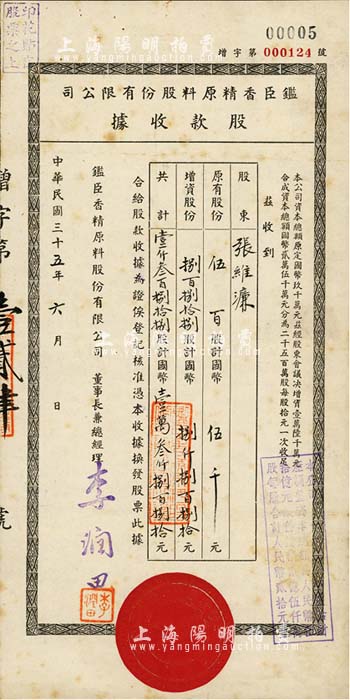 上海陽明拍賣
www.yangmingauction.com
00005
增字第 000124 號
鑑臣香精原料股份有限公司
股款收據
本公司資本總額原定國幣玖千萬元茲經股東會議決增資壹萬陸千萬元
合成資本總額國幣貳萬伍千萬元分為二千五百萬股每股拾元一次收足
茲收到
股東 張維濂
原有股份 伍百股計國幣 伍千元
增資股份 捌百捌拾捌股計國幣 捌仟捌百捌拾元
共計 壹仟叁百捌拾捌股計國幣 壹萬叁仟捌百捌拾元
合給股款收據為證俟登記核准憑本收據換發股票此據
鑑臣香精原料股份有限公司 董事長兼總經理 李潤田
李潤田
中華民國三十五年六月 日
增字第 壹貳肆 號
上海陽明拍賣
www.yangmingauction.com